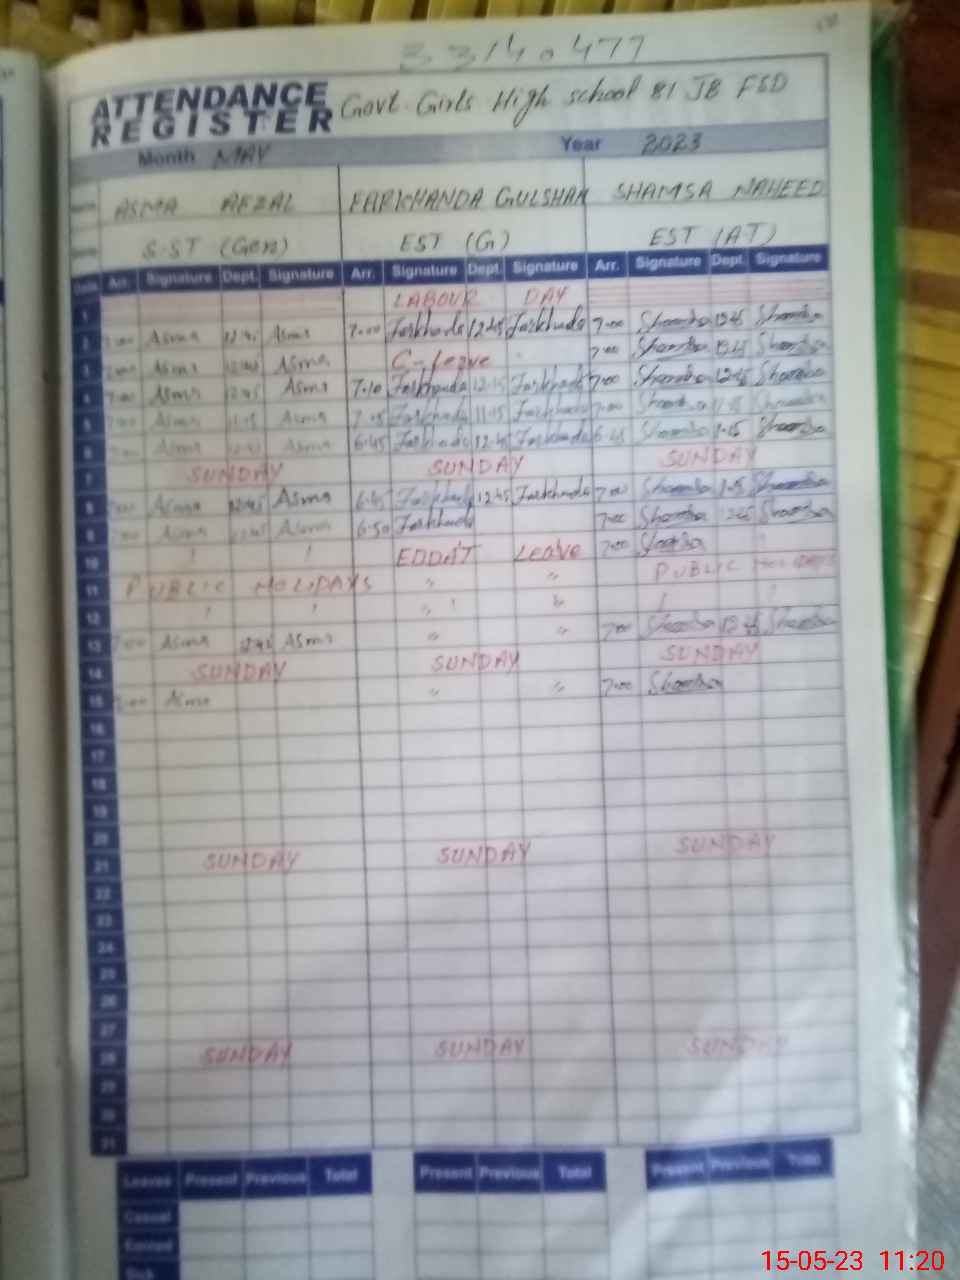 33140477
ATTENDANCE REGISTER Govt. Girls High school 81 JB FSD
Month MAY Year 2023
Name ASMA AFZAL FARKHANDA GULSHAN SHAMSA NAHEED
S.ST (Gen) EST (G) EST (A.T)
Date Arr. Signature Dept. Signature Arr. Signature Dept. Signature Arr. Signature Dept. Signature
1 LABOUR DAY
2 7:00 Asma 12:45 Asma 7:00 Farkhanda 12:45 Farkhanda 7:00 Shamsa 12:45 Shamsa
3 7:00 Asma 12:45 Asma C-leave 7:00 Shamsa 12:45 Shamsa
4 7:00 Asma 12:45 Asma 7:10 Farkhanda 12:45 Farkhanda 7:00 Shamsa 12:45 Shamsa
5 7:00 Asma 11:15 Asma 7:05 Farkhanda 11:15 Farkhanda 7:00 Shamsa 11:15 Shamsa
6 Asma Asma 6:45 Farkhanda 12:45 Farkhanda 6:45 Shamsa 1:15 Shamsa
7 SUNDAY SUNDAY SUNDAY
8 7:00 Asma 12:45 Asma 6:45 Farkhanda 12:45 Farkhanda 7:00 Shamsa Shamsa
9 7:00 Asma 12:45 Asma 6:50 Farkhanda 7:00 Shamsa 12:45 Shamsa
10 EDDAT Leave 7:00 Shamsa
11 PUBLIC HOLIDAYS " " PUBLIC HOLIDAYS
12 " "
13 7:00 Asma 12:45 Asma " " 7:00 Shamsa 12:45 Shamsa
14 SUNDAY SUNDAY SUNDAY
15 7:00 Asma " " 7:00 Shamsa
16
17
18
19
20
21 SUNDAY SUNDAY SUNDAY
22
23
24
25
26
27
28 SUNDAY SUNDAY SUNDAY
29
30
31
Leaves Present Previous Total Present Previous Total Present Previous Total
Casual
Earned
Sick
15-05-23 11:20